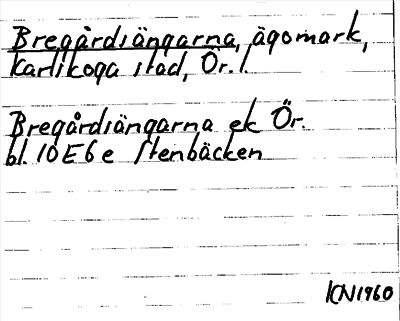 Bregårdsängarna, ägomark,
Karlskoga stad, Ör. l.
Bregårdsängarna ek Ör.
bl. 10E6e Stenbäcken
KN1960